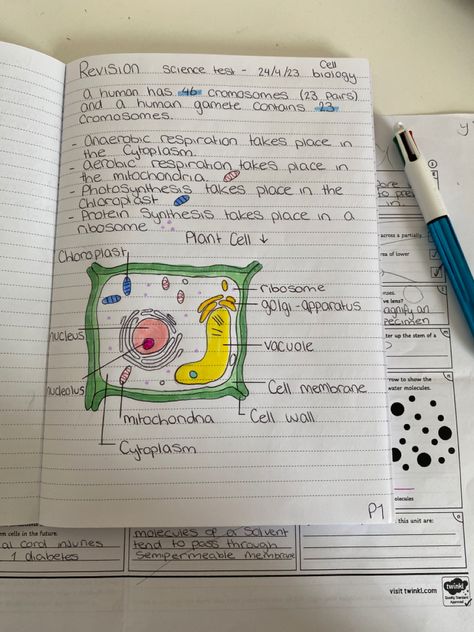 Revision science test - 24/4/23 Cell biology
A human has 46 cromosomes (23 pairs)
and a human gamete contains 23
cromosomes.
- Anaerobic respiration takes place in
the Cytoplasm.
Aerobic respiration takes place in
the mitochondria.
- Photosynthesis takes place in the
Chloroplast
- Protein Synthesis takes place in a
ribosome
Plant Cell ↓
Chloroplast
ribosome
golgi-apparatus
nucleus
vacuole
nucleolus
Cell membrane
mitochondna
Cell wall
Cytoplasm
P1
across a partially
area of lower
ve lens?
agnify an
specimen
ter up the stem of a
row to show the
water molecules.
molecules
, this unit are:
m cells in the future.
al cord injuries
1 diabetes
molecules of a solvent
tend to pass through
Semipermeable membrane
visit twinkl.com
twinkl